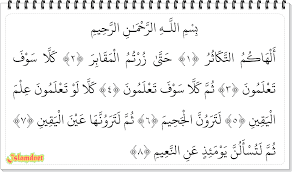 بِسْمِ اللَّـهِ الرَّحْمَـٰنِ الرَّحِيمِ
أَلْهَاكُمُ التَّكَاثُرُ ﴿١﴾ حَتَّىٰ زُرْتُمُ الْمَقَابِرَ ﴿٢﴾ كَلَّا سَوْفَ
تَعْلَمُونَ ﴿٣﴾ ثُمَّ كَلَّا سَوْفَ تَعْلَمُونَ ﴿٤﴾ كَلَّا لَوْ تَعْلَمُونَ عِلْمَ
الْيَقِينِ ﴿٥﴾ لَتَرَوُنَّ الْجَحِيمَ ﴿٦﴾ ثُمَّ لَتَرَوُنَّهَا عَيْنَ الْيَقِينِ ﴿٧﴾
ثُمَّ لَتُسْأَلُنَّ يَوْمَئِذٍ عَنِ النَّعِيمِ ﴿٨﴾
islamdert